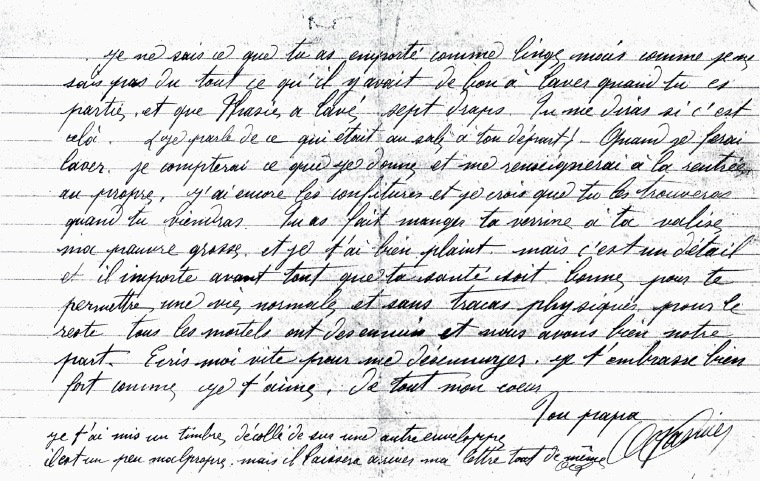 je ne sais ce que tu as emporté comme linge, mais comme je ne
sais pas du tout ce qu'il y avait de bon à laver quand tu es
partie, et que a lavé sept draps. Tu me diras si c'est
celà. (je parle de ce qui était au sale à ton départ) - Quand je ferai
laver, je compterai ce que je donne et me renseignerai à la rentrée
au propre. j'ai encore les confitures et je crois que tu les trouveras
quand tu viendras. Tu as fait manger ta verrine à ta valise,
ma pauvre grosse, et je t'ai bien plaint. mais c'est un détail
et il importe avant tout que ta santé soit bonne, pour te
permettre une vie normale et sans tracas physiques, pour le
reste tous les mortels ont des ennuis et nous avons bien notre
part. Ecris moi vite pour me desennuyer. je t'embrasse bien
fort comme je t'aime, de tout mon coeur
Ton papa
je t'ai mis un timbre, décollé de sur une autre enveloppe,
il est un peu malpropre, mais il laissera arriver ma lettre tout de même